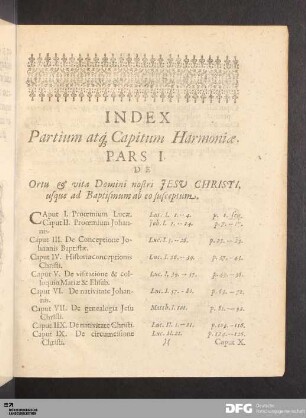 INDEX
Partium atq; Capitum Harmoniæ.
PARS I
DE
Ortu & vita Domini nostri JESU CHRISTI,
usque ad Baptismum ab eo susceptum.
CAput I. Proœmium Lucæ. Luc. I. 1.-4. p. 1. seq.
Caput II. Proœmium Johannis. Joh. I. 1.-14.
Caput III. De Conceptione Johannis Baptistæ. Luc. I 5.-
Caput IV. Historia conceptionis Christi. Luc. I.
Caput V. De visitatione & colloquio Mariæ & Elisab. Luc. I. 39.-
Caput VI. De nativitate Johannis. Luc. I. 57.-
Caput VII. De genealogia Jesu Christi. Matth. I.
Caput IIX. De nativitate Christi. Luc. II. 1.-
Caput IX. De circumcisione Christi. Luc. II.
Caput X.
DFG Deutsche Forschungsgemeinschaft